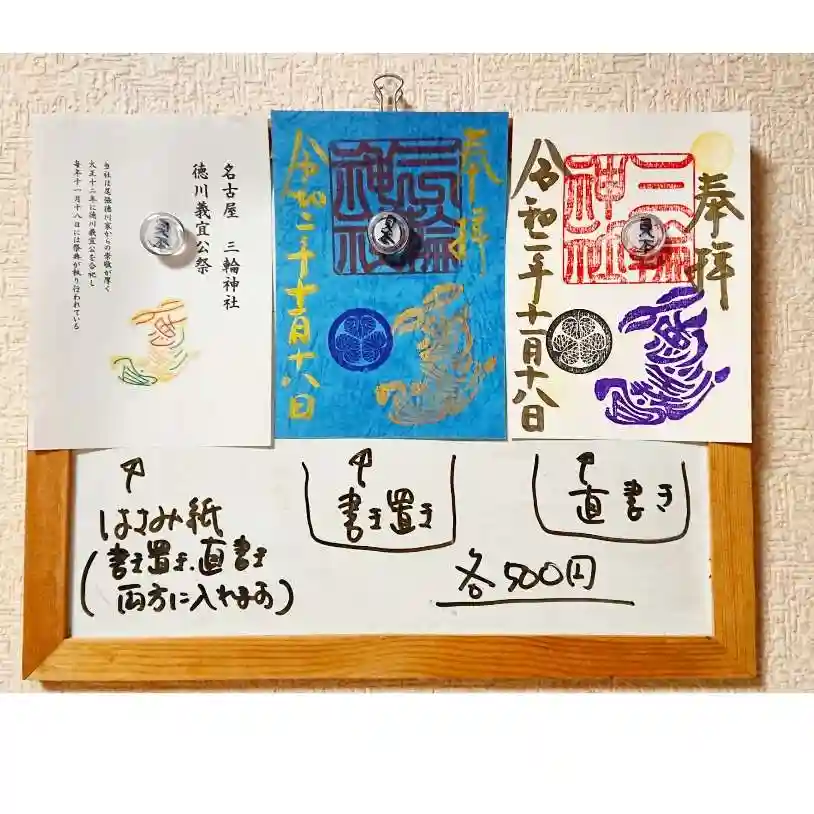 名古屋 三輪神社
徳川義宜公祭
当社は尾張徳川家からの崇敬が厚く
大正十二年に徳川義宜公を合祀し
毎年十一月十八日には祭典が執り行われている
見本
奉拝
三輪
神社
見本
令和二年十一月十八日
奉拝
三輪
神社
見本
令和二年十一月十八日
はさみ紙
(書き置き、直書き
両方に入れます)
書き置き
直書き
各500円